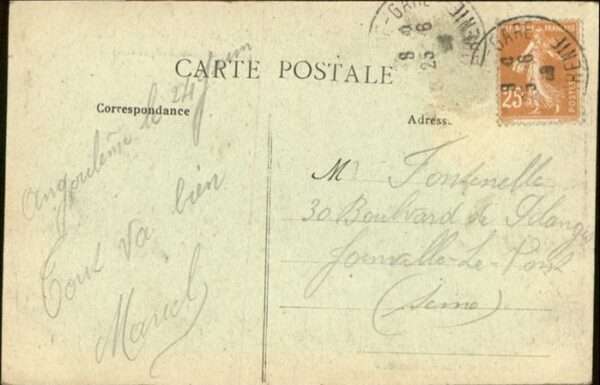 CARTE POSTALE
Correspondance
Angoulême le 24 Juin
Tout va bien
Marcel
Adresse
M Fontenelle
30 Boulvard de Polangis
Joinville-Le-Pont
(Seine)
GARE
25 6
GARE
25
POSTES